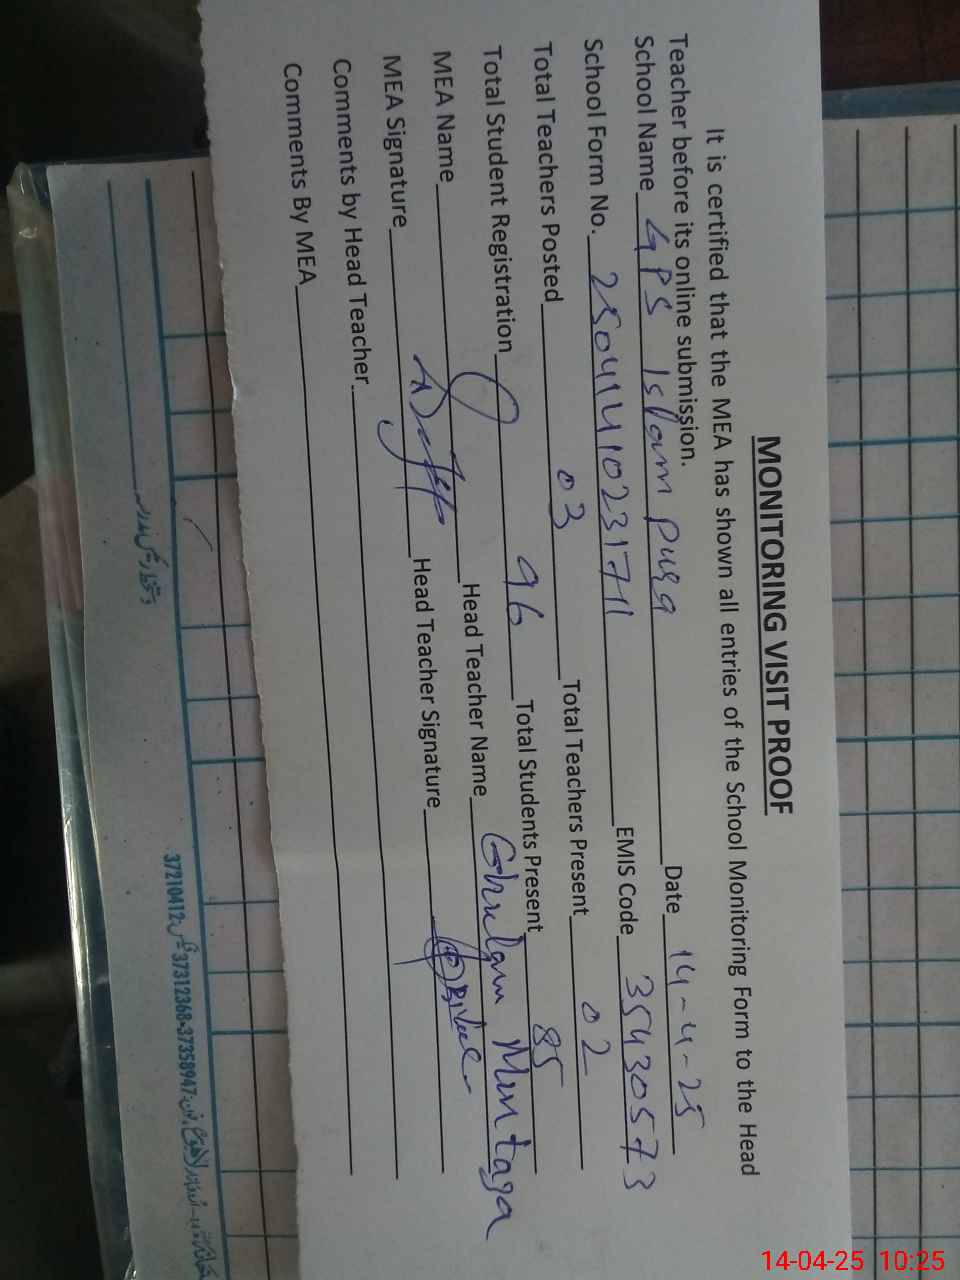 MONITORING VISIT PROOF
It is certified that the MEA has shown all entries of the School Monitoring Form to the Head
Teacher before its online submission.
School Name GPS Islam pura Date 14-4-25
School Form No. 25041410231711 EMIS Code 35430573
Total Teachers Posted 03 Total Teachers Present 02
Total Student Registration 96 Total Students Present 85
MEA Name Head Teacher Name Ghulam Murtaza
MEA Signature Head Teacher Signature
Comments by Head Teacher
Comments By MEA
37210412 37312368-37358947
14-04-25 10:25